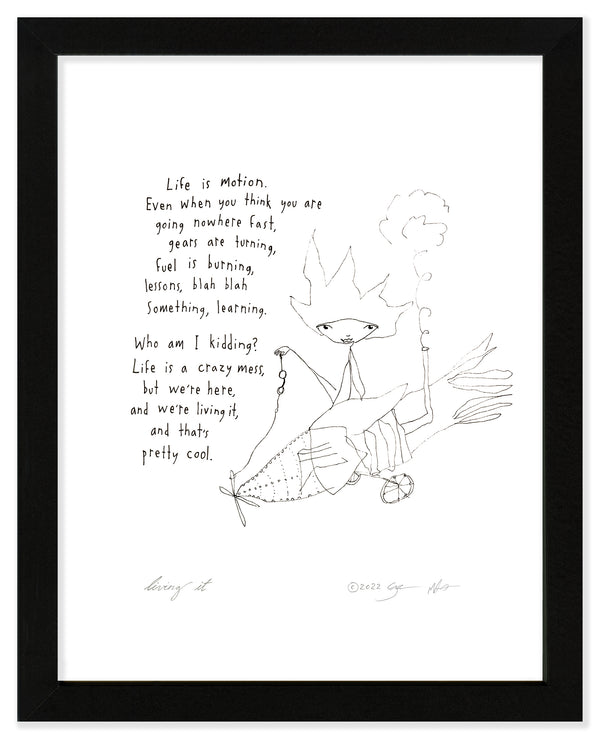 Life is motion.
Even when you think you are
going nowhere fast,
gears are turning,
fuel is burning,
lessons, blah blah
something, learning.
Who am I kidding?
Life is a crazy mess,
but we're here,
and we're living it,
and that's
pretty cool.
living it
©2022